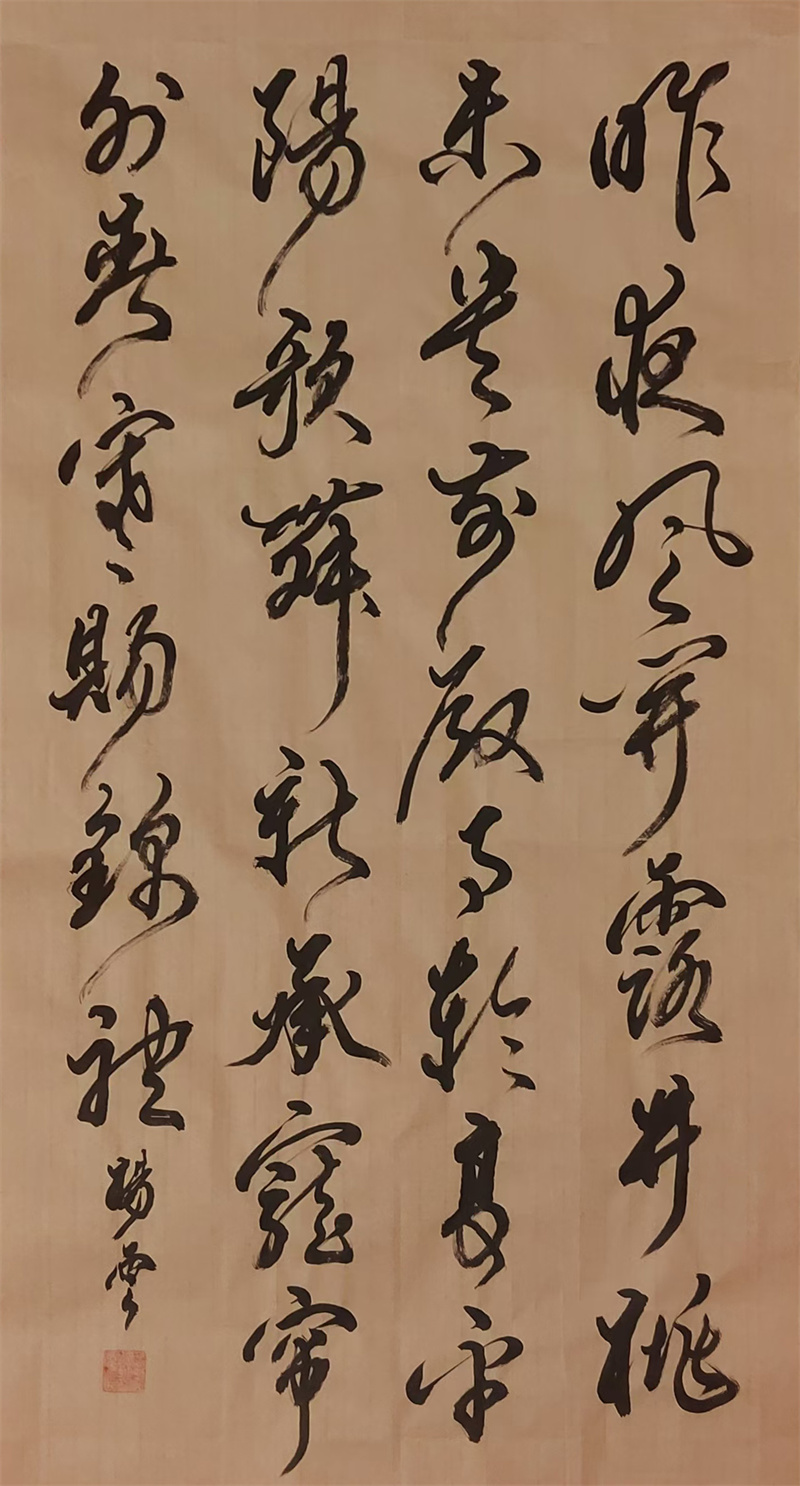 昨夜風開露井桃
未央前殿月輪高平
陽歌舞新承寵簾
外春寒賜錦袍楊雲